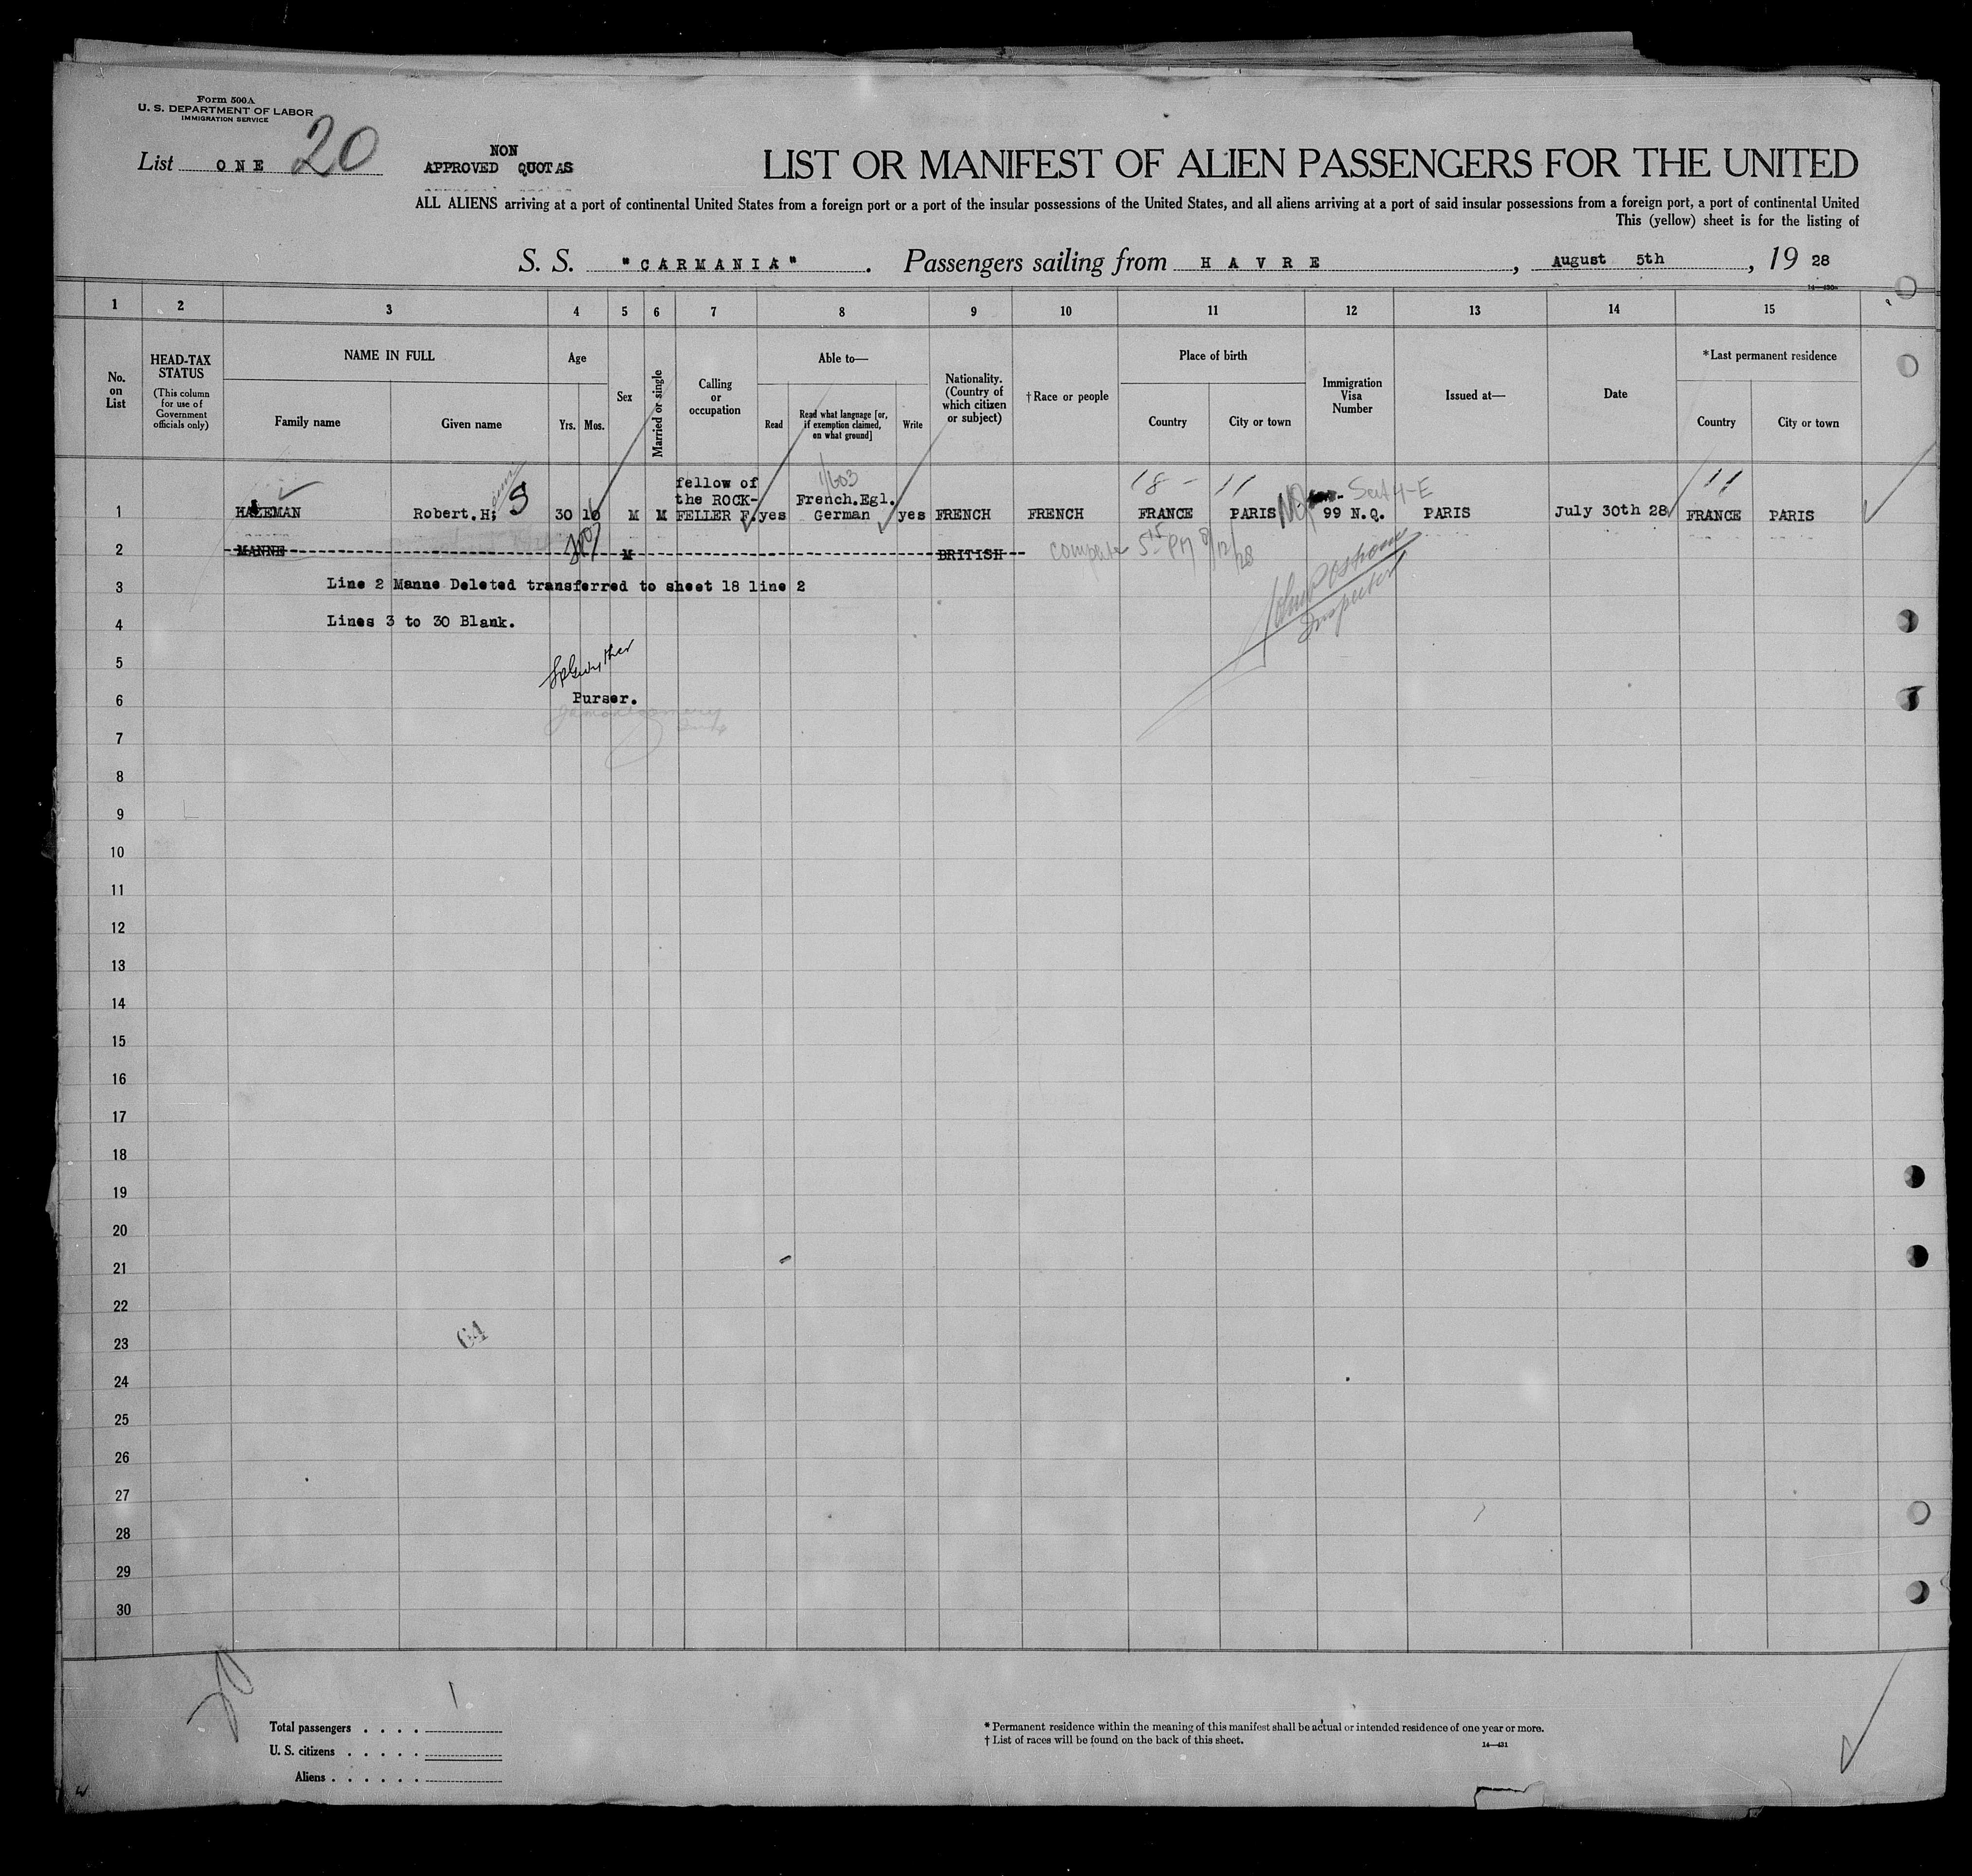 Form 500A
U. S. DEPARTMENT OF LABOR
IMMIGRATION SERVICE
List ONE 20
NON
APPROVED QUOTAS
LIST OR MANIFEST OF ALIEN PASSENGERS FOR THE UNITED
ALL ALIENS arriving at a port of continental United States from a foreign port or a port of the insular possessions of the United States, and all aliens arriving at a port of said insular possessions from a foreign port, a port of continental United
This (yellow) sheet is for the listing of
S. S. "CARMANIA". Passengers sailing from HAVRE, August 5th, 19 28
14—430
1 2 3 4 5 6 7 8 9 10 11 12 13 14 15
No. on List
HEAD-TAX STATUS
(This column for use of Government officials only)
NAME IN FULL
Family name
Given name
Age
Yrs. Mos.
Sex
Married or single
Calling or occupation
Able to—
Read
Read what language [or, if exemption claimed, on what ground]
Write
Nationality. (Country of which citizen or subject)
†Race or people
Place of birth
Country
City or town
Immigration Visa Number
Issued at—
Date
*Last permanent residence
Country
City or town
1/603
18 - 11
11
fellow of
the ROCK-
French.Egl.
Sect 4-E
1 Robert.H; S 30 10 M M FELLER F. yes German yes FRENCH FRENCH FRANCE PARIS NQ 99 N.Q. PARIS July 30th 28 FRANCE PARIS
2 MANNE M BRITISH
5 15 PM 8/12/28
3 Line 2 Manne Deleted transferred to sheet 18 line 2
Inspector
4 Lines 3 to 30 Blank.
5
6 Purser.
7
8
9
10
11
12
13
14
15
16
17
18
19
20
21
22
23
64
24
25
26
27
28
29
30
20
1
Total passengers
U. S. citizens
Aliens
* Permanent residence within the meaning of this manifest shall be actual or intended residence of one year or more.
† List of races will be found on the back of this sheet.
14—431